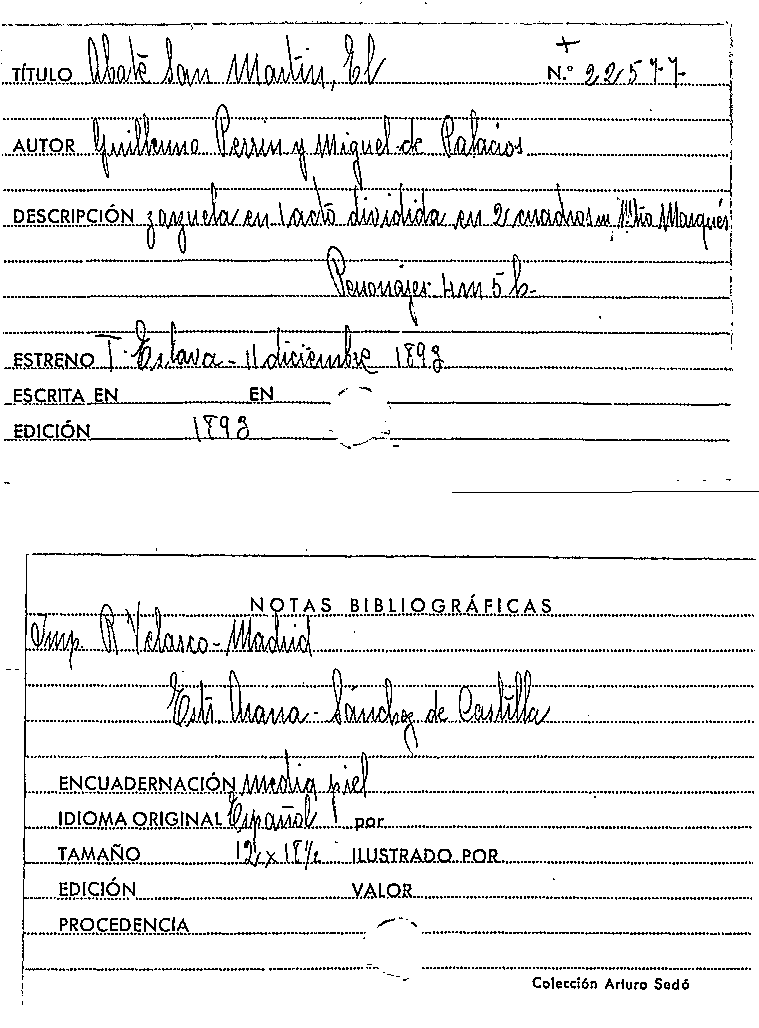 +
TÍTULO Abate San Martin, El N.º 22577
AUTOR Guillermo Perrin y Miguel de Palacios
DESCRIPCIÓN zarzuela en 1 acto dividida en 2 cuadros m. Mtro Marqués
Personajes 4m 5h-
ESTRENO T. Eslava - 11 diciembre 1893
ESCRITA EN EN
EDICIÓN 1893
NOTAS BIBLIOGRÁFICAS
Imp. R Velasco - Madrid
Estr. Arana - Sánchez de Castilla
ENCUADERNACIÓN media piel
IDIOMA ORIGINAL Español por
TAMAÑO 12 x 18½ ILUSTRADO POR
EDICIÓN VALOR
PROCEDENCIA
Colección Arturo Sedó